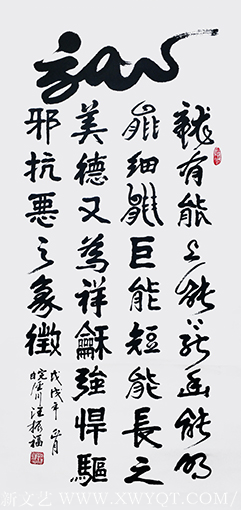 龍
龍有能上能下能幽能明
能細能巨能短能長之
美德又為祥龢強悍驅
邪抗惡之象徵
戊戌年
川汪振福
新文艺 WWW.XWYQT.COM